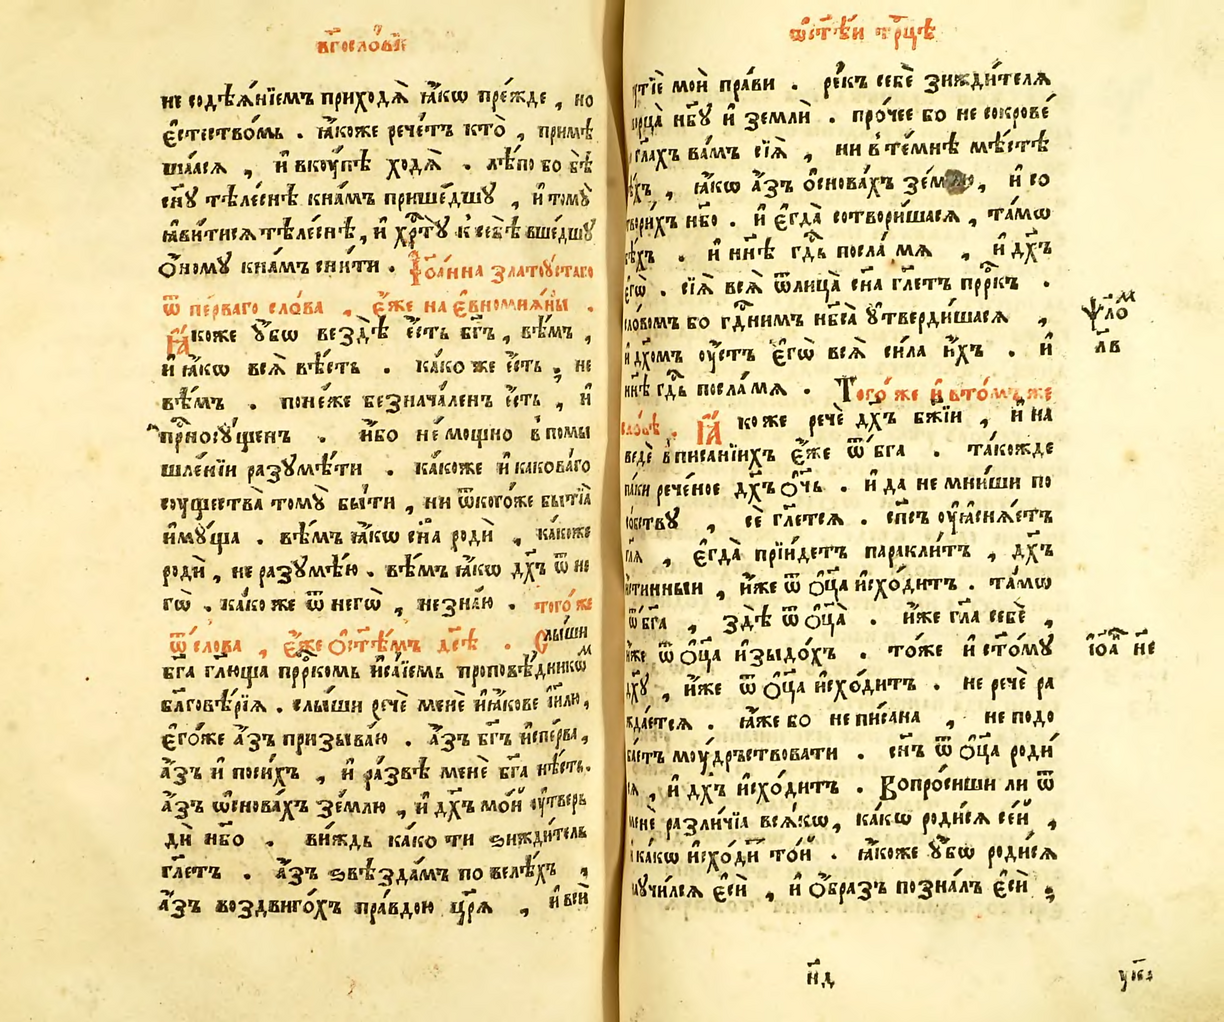 бг҃ослѡ́вїе
не содѣѧ́нїемъ приходѧ̀ ꙗ҆́кѡ пре́жде , но
є҆стество́мь . ꙗ҆́коже рече́тъ кто̀ , примѣ
ша́лсѧ , и҆ вкꙋ́пѣ ходѧ̀ . лѣ́по бо бѣ̀
сн҃ꙋ тѣле́снѣ кна́мъ прише́дшꙋ , и҆ томꙋ̀
ꙗ҆ви́тисѧ тѣле́снѣ , и҆ хр҃тꙋ̀ к себѣ̀ вше́дшꙋ
ѻ҆́номꙋ кна́мъ сни́ти . І҆ѡа́нна златоꙋ́стаго
ѿ пе́рваго сло́ва , є҆́же на є҆вномиѧ́ны .
Ꙗ҆́коже ᲂу҆́бѡ вездѣ̀ є҆́сть бг҃ъ , вѣ́мъ ,
и҆ ꙗ҆́кѡ всѧ̀ вѣ́сть . ка́ко же є҆́сть , не
вѣ́мъ . поне́же безнача́ленъ є҆́сть , и҆
прⷭ҇носꙋ́щенъ . и҆́бо не́мощно в помы
шле́нїи разꙋмѣ́ти . ка́коже и҆ какова́го
сꙋщества̀ томꙋ̀ бы́ти , ни ѿкого́же бытїѧ̀
и҆мꙋ́ща . вѣ́мъ ꙗ҆́кѡ сн҃а родѝ , ка́коже
родѝ , не разꙋмѣ́ю . вѣ́мъ ꙗ҆́кѡ дх҃ъ ѿ не
гѡ̀ . ка́ко же ѿ негѡ̀ , не зна́ю . того́ же
ѿ сло́ва , є҆́же ѻ҆ ст҃ѣ́мъ дс҃ѣ . Слы́ши
бг҃а гл҃юща прⷪ҇ркомь и҆са́їемь проповѣ́дникѡм
бл҃говѣ́рїѧ . слы́ши речѐ менѐ и҆ꙗ҆́кове і҆и҃лю ,
є҆го́же а҆́зъ призыва́ю . а҆́зъ бг҃ъ и҆спе́рва ,
а҆́зъ и҆ поси́хъ , и҆ ра́звѣ менѐ бг҃а нѣ́сть .
а҆́зъ ѡ҆снова́хъ зе́млю , и҆ дх҃ъ мо́й ᲂу҆тверь
дѝ нб҃о . ви́ждь ка́ко ти ѕижди́тель
гл҃етъ . а҆́зъ ѕвѣзда́мъ по велѣ́хъ ,
а҆́зъ воздвиго́хъ пра́вдою цр҃ѧ , и҆ всѝ
ѡ҆ ст҃ѣ́й трⷪ҇цѣ
пꙋтїѐ моѝ пра́ви . ре́къ себѐ зижди́телѧ
творца̀ нб҃ꙋ и҆ землѝ . про́чее бо не сокрове́
гл҃ахъ ва́мъ сїѧ̀ , ни в те́мнѣ мѣ́стѣ
, ꙗ҆́кѡ а҆́зъ ѻ҆снова́хъ зе́млю , и҆ со
твори́хъ нб҃о . и҆ є҆гда̀ сотвори́шасѧ , та́мѡ
бѣ́хъ . и҆ нн҃ѣ гдⷭ҇ь посла́ мѧ , и҆ дх҃ъ
є҆гѡ̀ . сїѧ̀ всѧ̀ ѿ лица̀ сн҃а гл҃етъ прⷪ҇ркъ .
сло́вомъ бо гдⷭ҇нимъ нб҃са̀ ᲂу҆тверди́шасѧ ,
и҆ дх҃омъ ᲂу҆́стъ є҆гѡ̀ всѧ̀ си́ла и҆́хъ . и҆
нн҃ѣ гдⷭ҇ь посла́ мѧ . Того́ же и҆ в то́мъ же
сло́вѣ . Ꙗ҆́коже речѐ дх҃ъ бж҃їи , и҆ на
ведѐ в писанїихъ є҆́же ѿ бг҃а . та́кожде
па́ки рече́ное дх҃ъ ѻ҆́ч҃ь . и҆ да не мни́ши по
со́бствꙋ , сѐ гл҃етсѧ . сп҃съ ᲂу҆ꙗ҆снѧ́етъ
гл҃ѧ , є҆гда̀ прїи́детъ паракли́тъ , дх҃ъ
и҆́стинныи , и҆́же ѿ ѻ҆ц҃а̀ и҆схо́дитъ . та́мѡ
ѿ бг҃а , здѣ̀ ѿ ѻ҆ц҃а̀ . и҆́же гл҃а себѐ ,
и҆́же ѿ ѻ҆ц҃а̀ и҆зыдо́хъ . то́же и҆ ст҃о́мꙋ
дх҃ꙋ , и҆́же ѿ ѻ҆ц҃а̀ и҆схо́дитъ . не речѐ ра
жда́етсѧ . ꙗ҆́же бо не пи́сана , не подо
ба́етъ мꙋ́дрьствовати . сн҃ъ ѿ ѻ҆ц҃а̀ роди́
сѧ , и҆ дх҃ъ и҆схо́дитъ . Вопро́сиши ли ѿ
менѐ разли́чїа всѧ́кѡ , ка́кѡ роди́сѧ се́й ,
и҆ ка́кѡ и҆схо́ди то́й . ꙗ҆́коже ᲂу҆́бѡ роди́сѧ
наꙋчи́лсѧ є҆сѝ , и҆ ѻ҆́бразъ позна́лъ є҆сѝ ,
ѱало́м
лв
і҆ѡа́ н҃є
н҃д